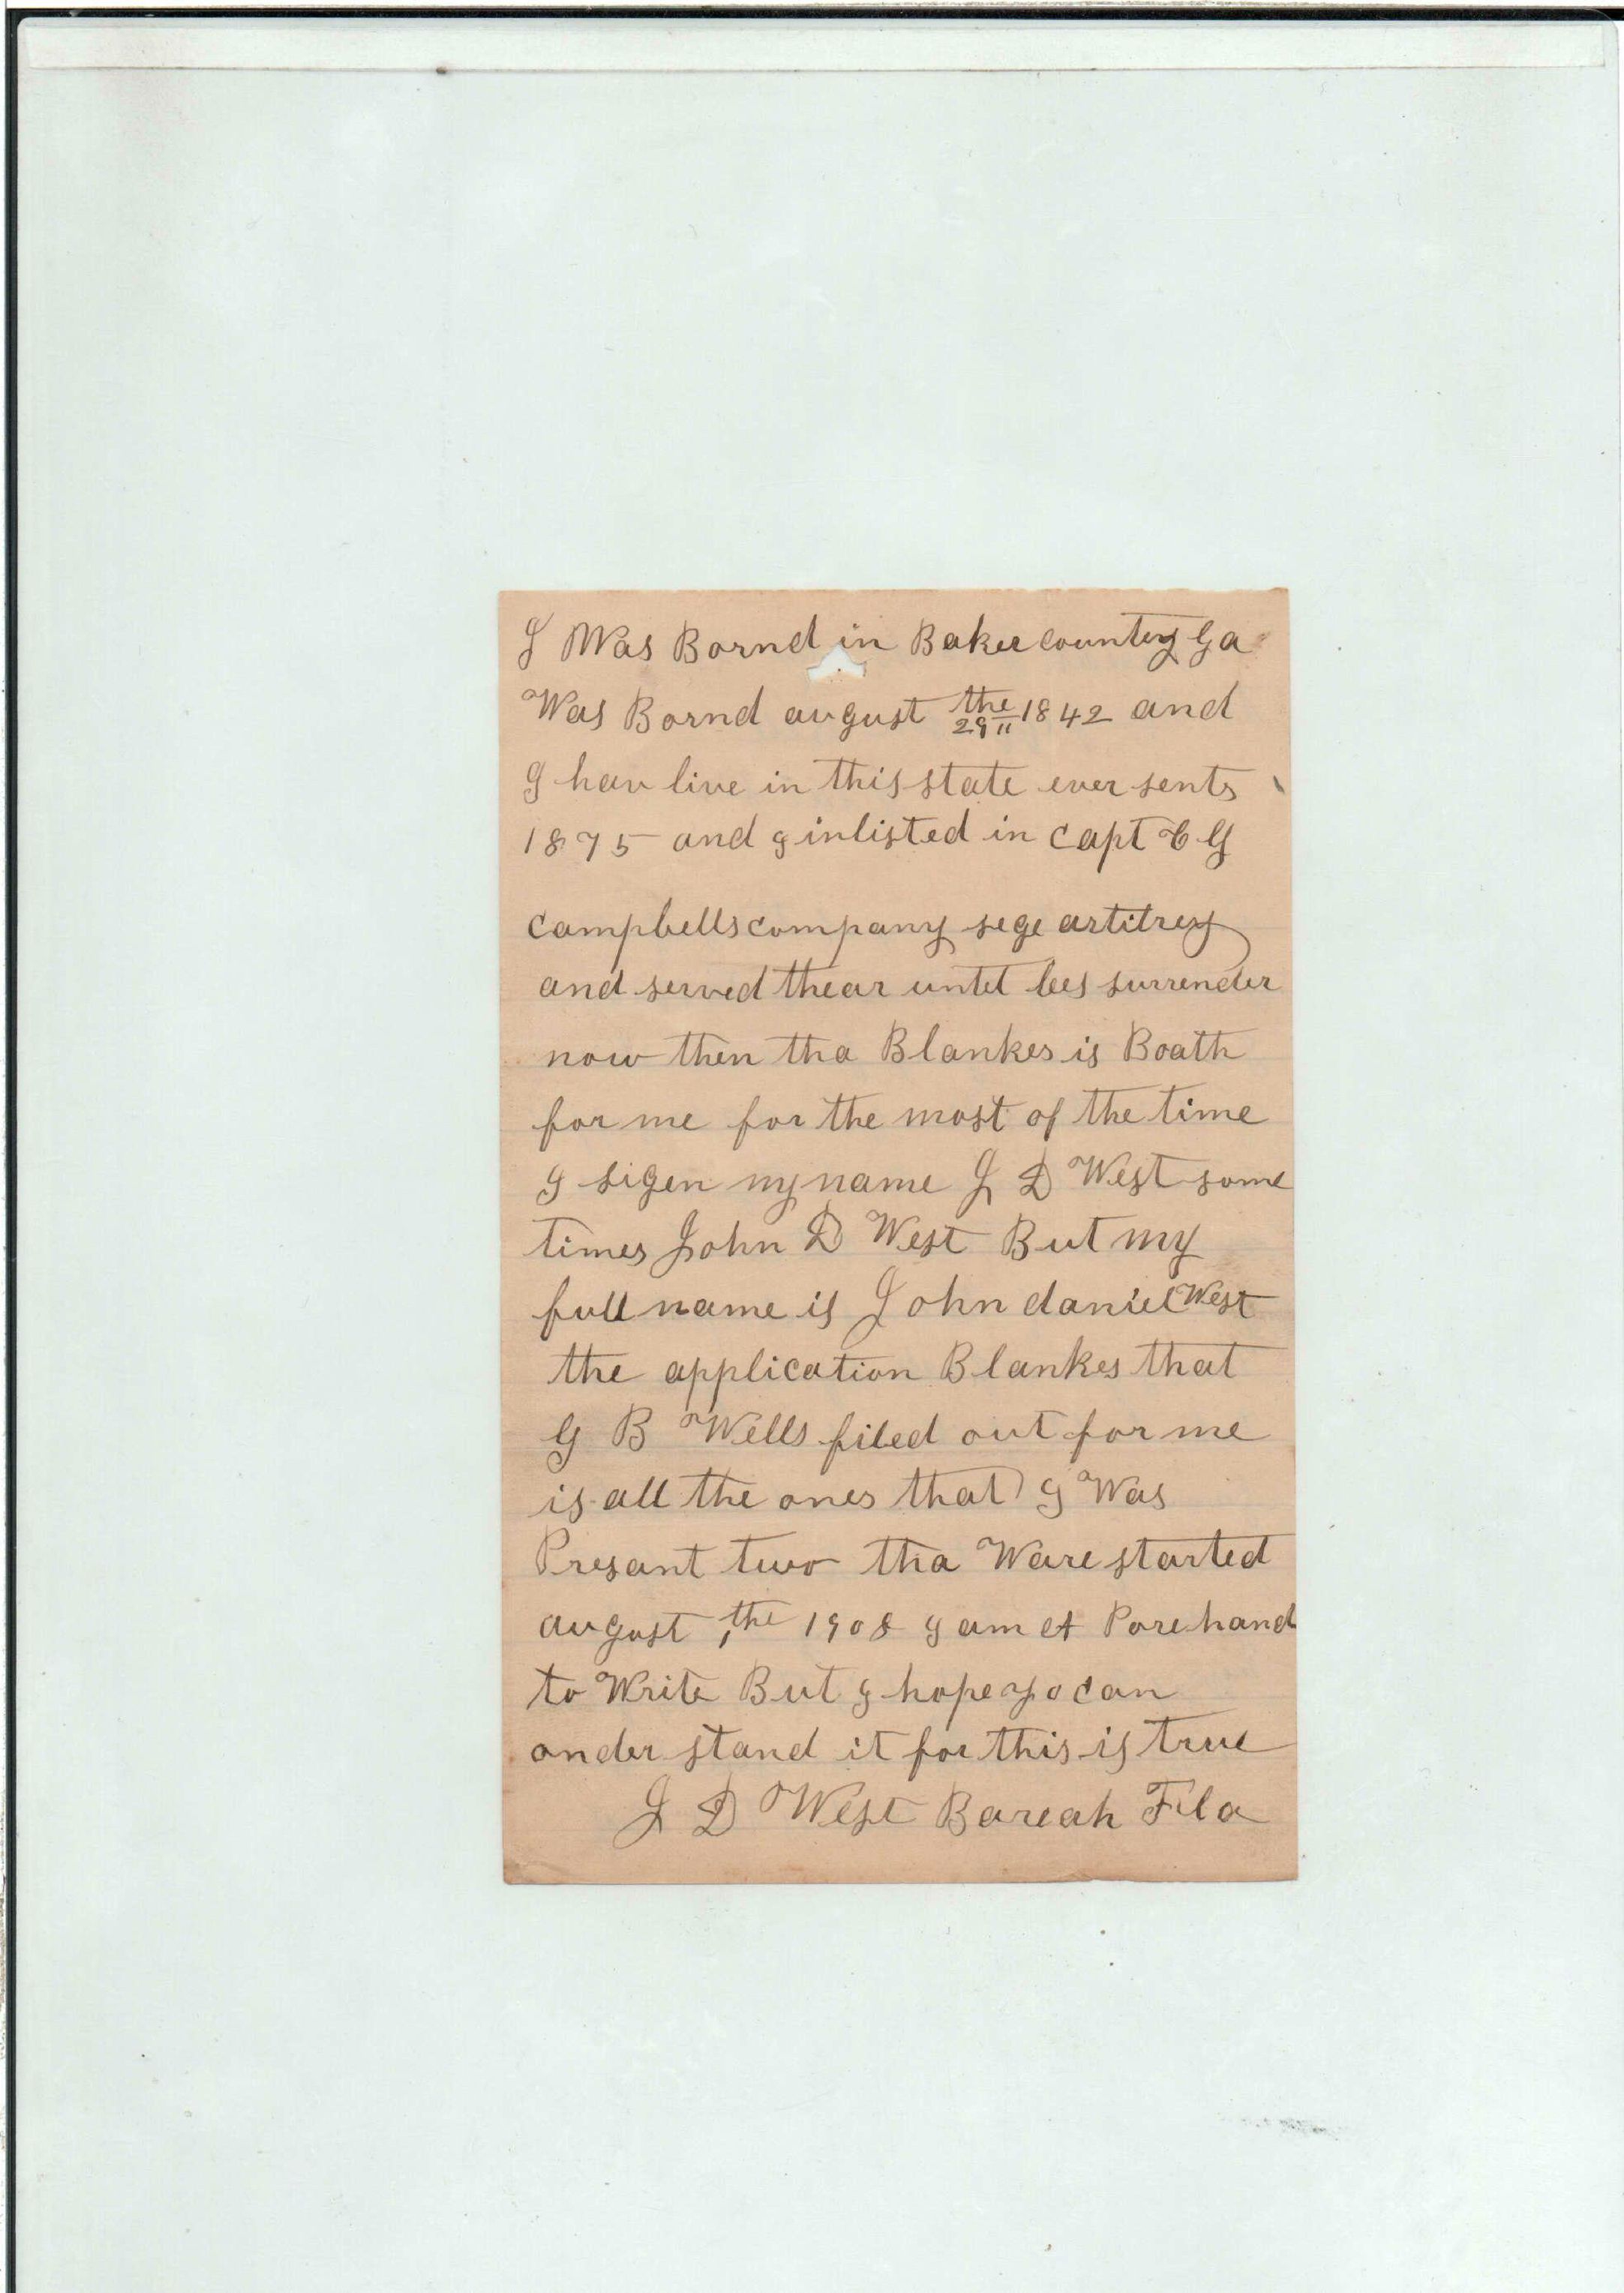 I Was Bornd in Baker county Ga
Was Bornd august the 29 1842 and
I hav live in this state ever sents
1875 and I inlisted in capt C G
campbells company sege artitrey
and served thear untel lees surrender
now then tha Blankes is Boath
for me for the most of the time
I sigen my name J D West some
times John D West But my
full name is John daniel West
the application Blankes that
G B Wells filed out for me
is all the ones that I Was
Presant two tha Ware started
august 1 the 1908 I am A Pore hand
to Write But I hope yo can
onder stand it for this is true
J D West Bareah Fla